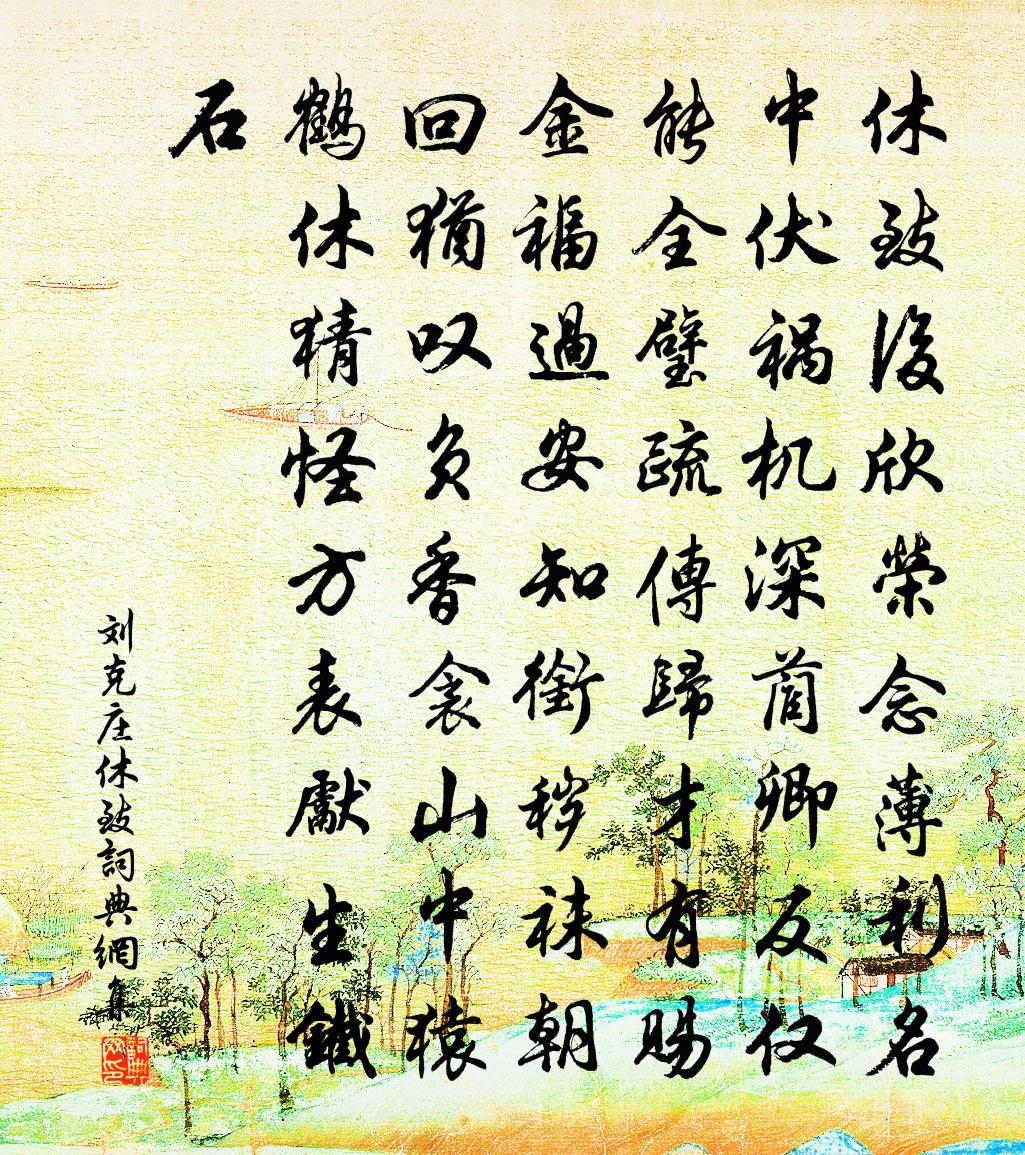 休致後欣榮念薄利名
中伏祸机深蔺卿反仅
能全璧疏傳歸才有賜
金福過安知銜秽袜朝
回猶叹负香衾山中猿
鶴休猜怪方表獻生鐵
石
刘克庄休致詞典網集